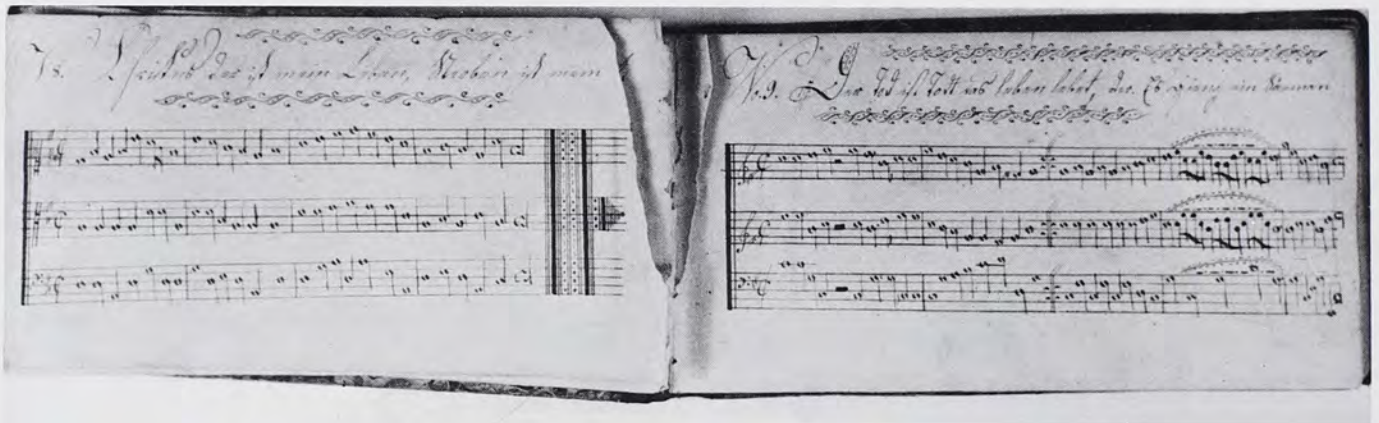 8. Christus der ist mein Leben, Sterben ist mein
No. 9. Der Tod ist Tott das leben lebet, der. Es gieng ein